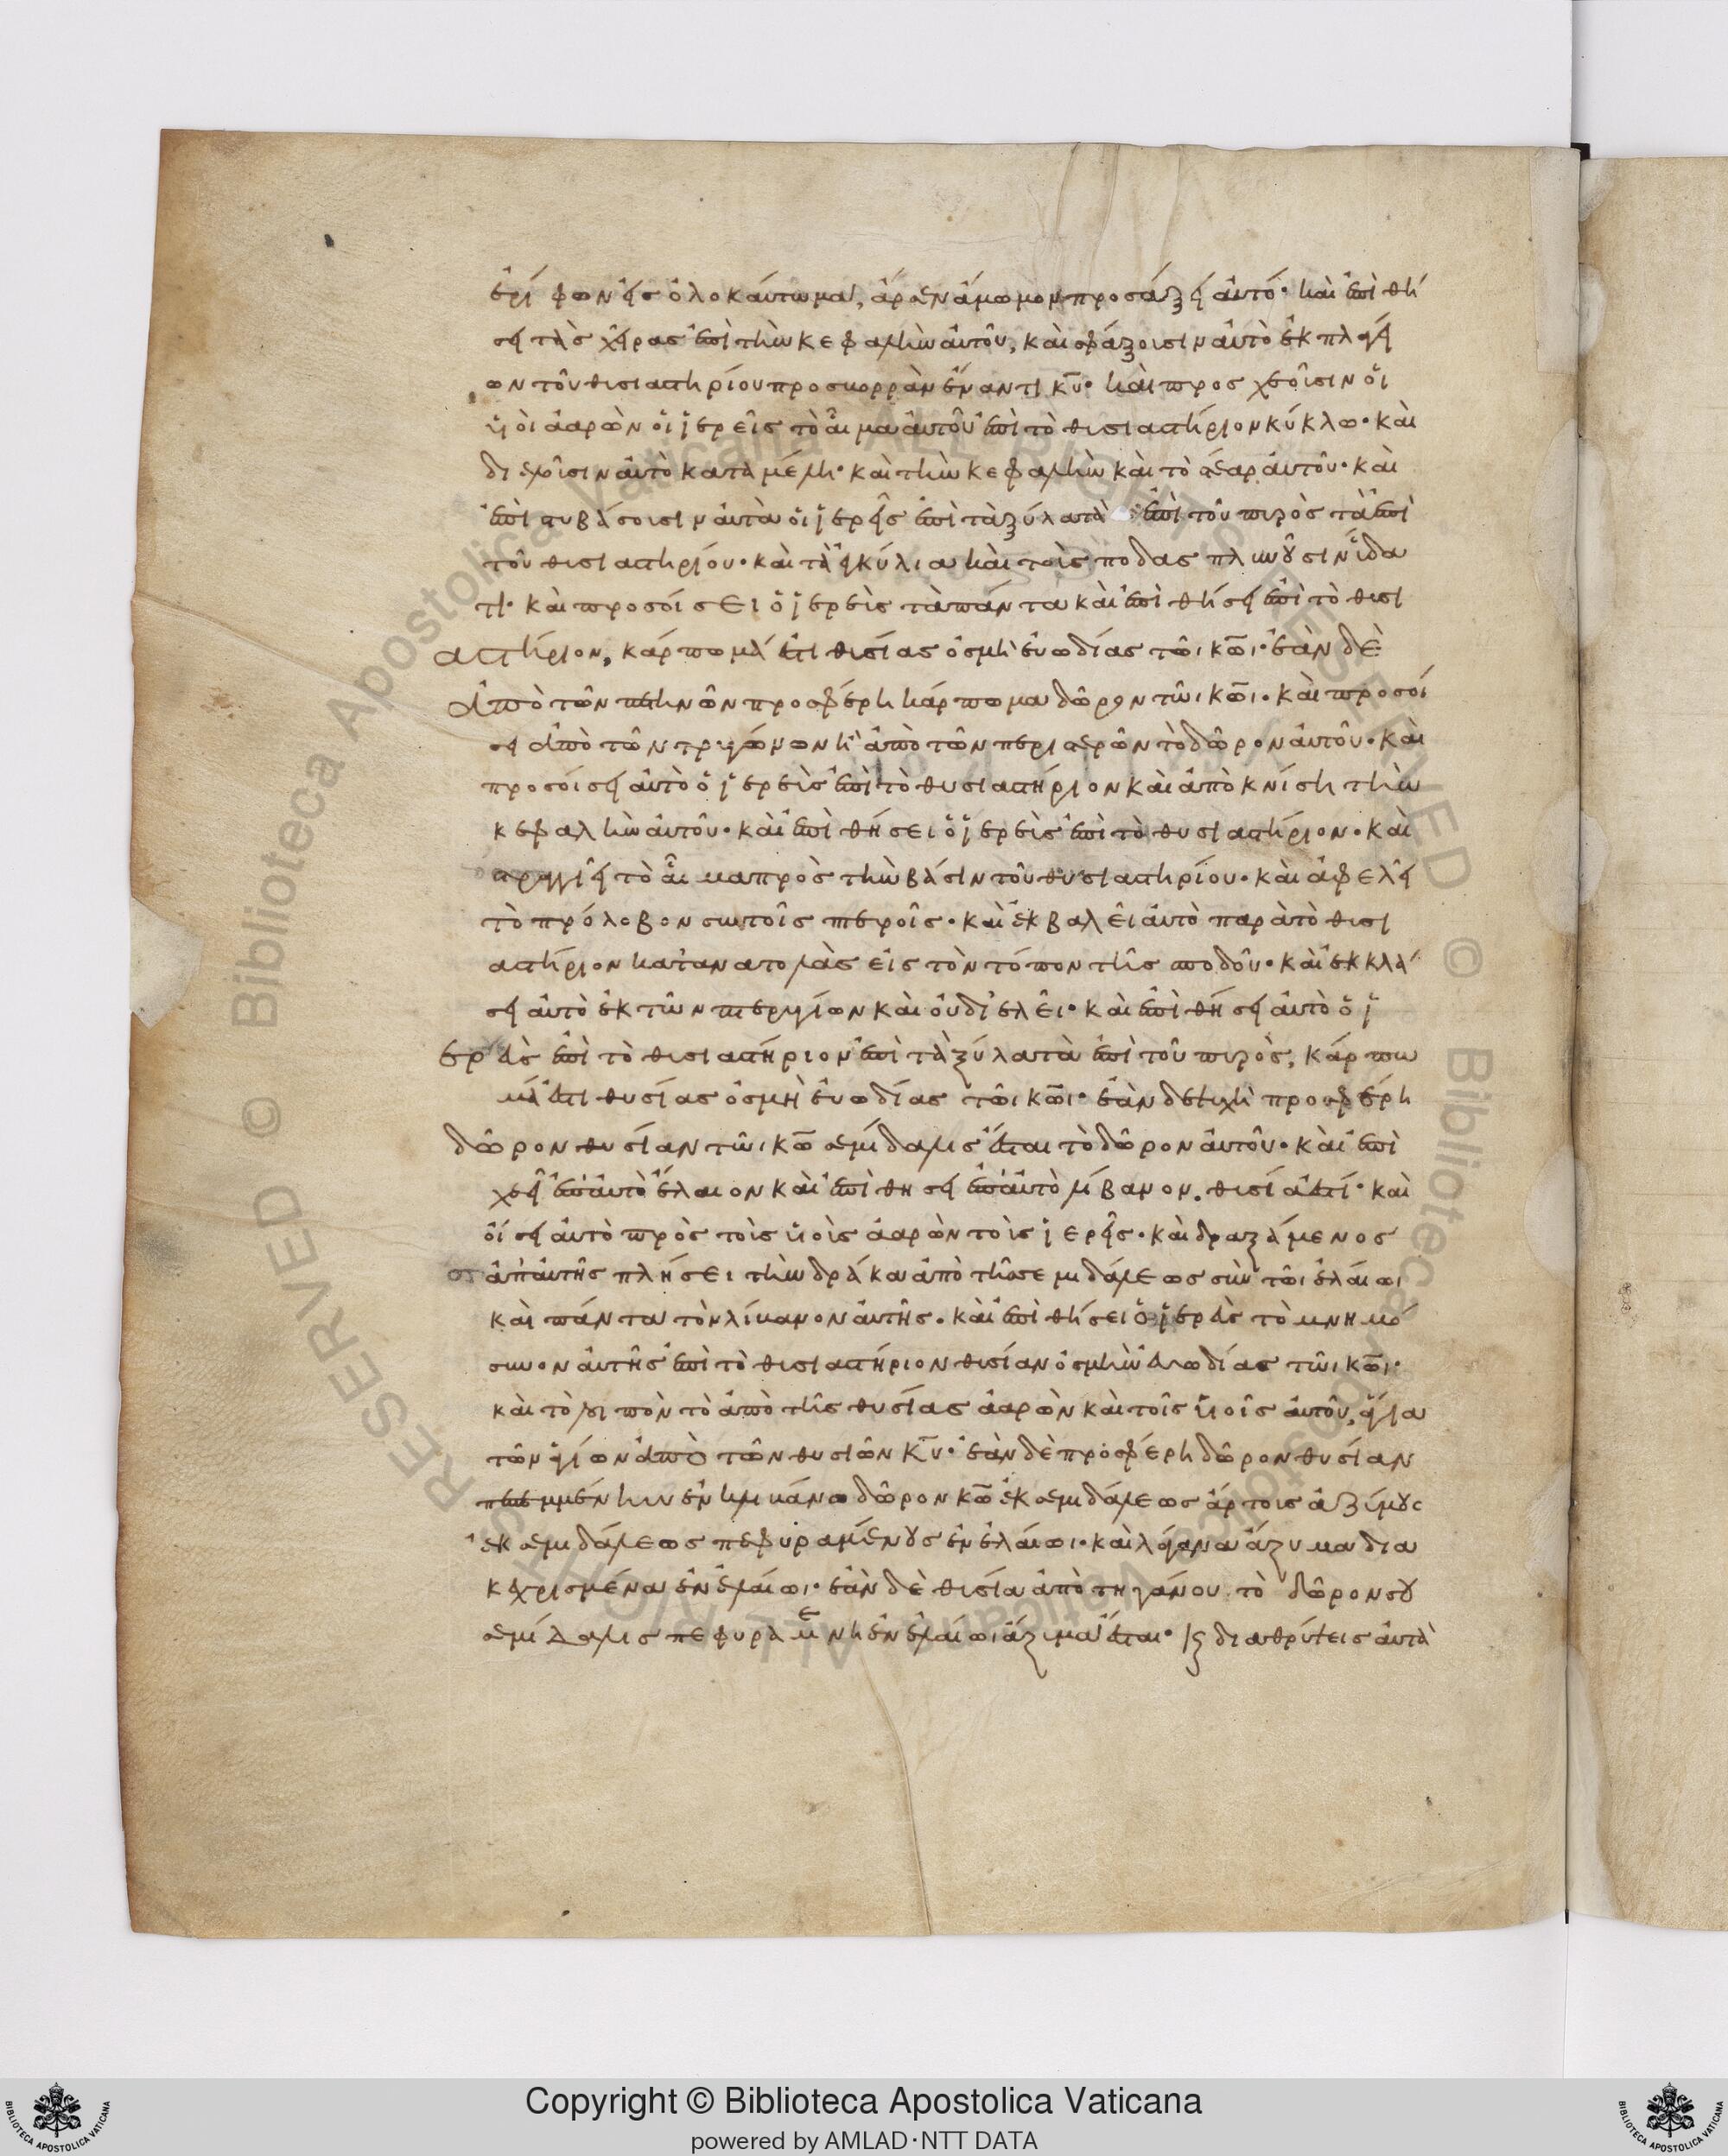 ἐρίφων εἰς ὁλοκαύτωμα, ἄρσεν ἄμωμον προσάξει αὐτό· καὶ ἐπιθή
σει τὰς χεῖρας ἐπὶ τὴν κεφαλὴν αὐτοῦ, καὶ σφάξουσιν αὐτὸ ἐκ πλαγί
ων τοῦ θυσιαστηρίου πρὸς βορρᾶν ἔναντι κυ̅· καὶ προσχεοῦσιν οἱ
υἱοὶ ἀαρὼν οἱ ἱερεῖς τὸ αἷμα αὐτοῦ ἐπὶ τὸ θυσιαστήριον κύκλω· καὶ
διελοῦσιν αὐτὸ κατὰ μέλη· καὶ τὴν κεφαλὴν καὶ τὸ στέαρ αὐτοῦ· καὶ
ἐπιστοιβάσουσιν αὐτὰ οἱ ἱερεῖς ἐπὶ τὰ ξύλα τὰ ἐπὶ τοῦ πυρὸς τὰ ἐπὶ
τοῦ θυσιαστηρίου· καὶ τὰ ἐγκύλια καὶ τοὺς πόδας πλυνοῦσιν ὕδα
τι· καὶ προσοίσει ὁ ἱερεὺς τὰ πάντα καὶ ἐπιθήσει ἐπὶ τὸ θυσι
αστήριον, κάρπωμά ἐστι θυσίας ὀσμὴ εὐωδίας τῶι κω̅ι· ἐὰν δὲ
ἀπὸ τῶν πετηνῶν προσφέρη κάρπωμα δῶρον τῶι κω̅ι· καὶ προσοί
σει ἀπὸ τῶν τρυγόνων ἢ ἀπὸ τῶν περιστερῶν τὸ δῶρον αὐτοῦ· καὶ
προσοίσει αὐτὸ ὁ ἱερεὺς ἐπὶ τὸ θυσιαστήριον καὶ ἀποκνίση τὴν
κεφαλὴν αὐτοῦ· καὶ ἐπιθήσει ὁ ἱερεὺς ἐπὶ τὸ θυσιαστήριον· καὶ
στραγγιεῖ τὸ αἷμα πρὸς τὴν βάσιν τοῦ θυσιαστηρίου· καὶ ἀφελεῖ
τὸ πρόλοβον σὺν τοῖς πτεροῖς· καὶ ἐκβαλεῖ αὐτὸ παρὰ τὸ θυσι
αστήριον κατ' ἀνατολὰς εἰς τὸν τόπον τῆς σποδοῦ· καὶ ἐκκλά
σει αὐτὸ ἐκ τῶν πτερυγίων καὶ οὐ διελεῖ· καὶ ἐπιθήσει αὐτὸ ὁ ἱ
ερεὺς ἐπὶ τὸ θυσιαστήριον ἐπὶ τὰ ξύλα τὰ ἐπὶ τοῦ πυρὸς, κάρπω
μά ἐστι θυσίας ὀσμὴ εὐωδίας τῶι κω̅ι· ἐὰν δὲ ψυχὴ προσφέρη
δῶρον θυσίαν τῶι κω̅ σεμίδαλις ἔσται τὸ δῶρον αὐτοῦ· καὶ ἐπι
χεεῖ ἐπ' αὐτὸ ἔλαιον καὶ ἐπιθησει ἐπ' αὐτὸ λίβανον. θυσία ἐστί· καὶ
οἴσει αὐτὸ πρὸς τοὺς υἱοὺς ἀαρὼν τοὺς ἱερεῖς· καὶ δραξάμενος
ἀπ' αὐτῆς πλήσει τὴν δράκα ἀπὸ τῆς σεμιδάλεως σὺν τῶι ἐλαίωι
καὶ πάντα τὸν λίβανον αὐτῆς· καὶ ἐπιθήσει ὁ ἱερεὺς τὸ μνημό
συνον αὐτῆς ἐπὶ τὸ θυσιαστήριον θυσίαν ὀσμὴν εὐωδίας τῶι κω̅ι·
καὶ τὸ λιπὸν τὸ ἀπὸ τῆς θυσίας ἀαρὼν καὶ τοῖς υἱοῖς αὐτοῦ, ἅγια
τῶν ἁγίων ἀπὸ τῶν θυσιῶν κυ̅· ἐὰν δὲ προσφέρη δῶρον θυσίαν
πεπεμμένην ἐν κλιβάνω δῶρον κω̅ ἐκ σεμιδάλεως ἄρτους ἀζύμους
ἐκ σεμιδάλεως πεφυραμένους ἐν ἐλαίωι· καὶ λάγανα ἄζυμα δια
κεχρισμένα ἐν ἐλαίωι· ἐὰν δὲ θυσία ἀπὸ τηγάνου τὸ δῶρον σου
σεμίδαλις πεφυραμένη ἐν ἐλαίωι ἄζυμα ἔσται· καὶ διαθρύψεις αὐτὰ
Copyright © Biblioteca Apostolica Vaticana
powered by AMLAD·NTT DATA